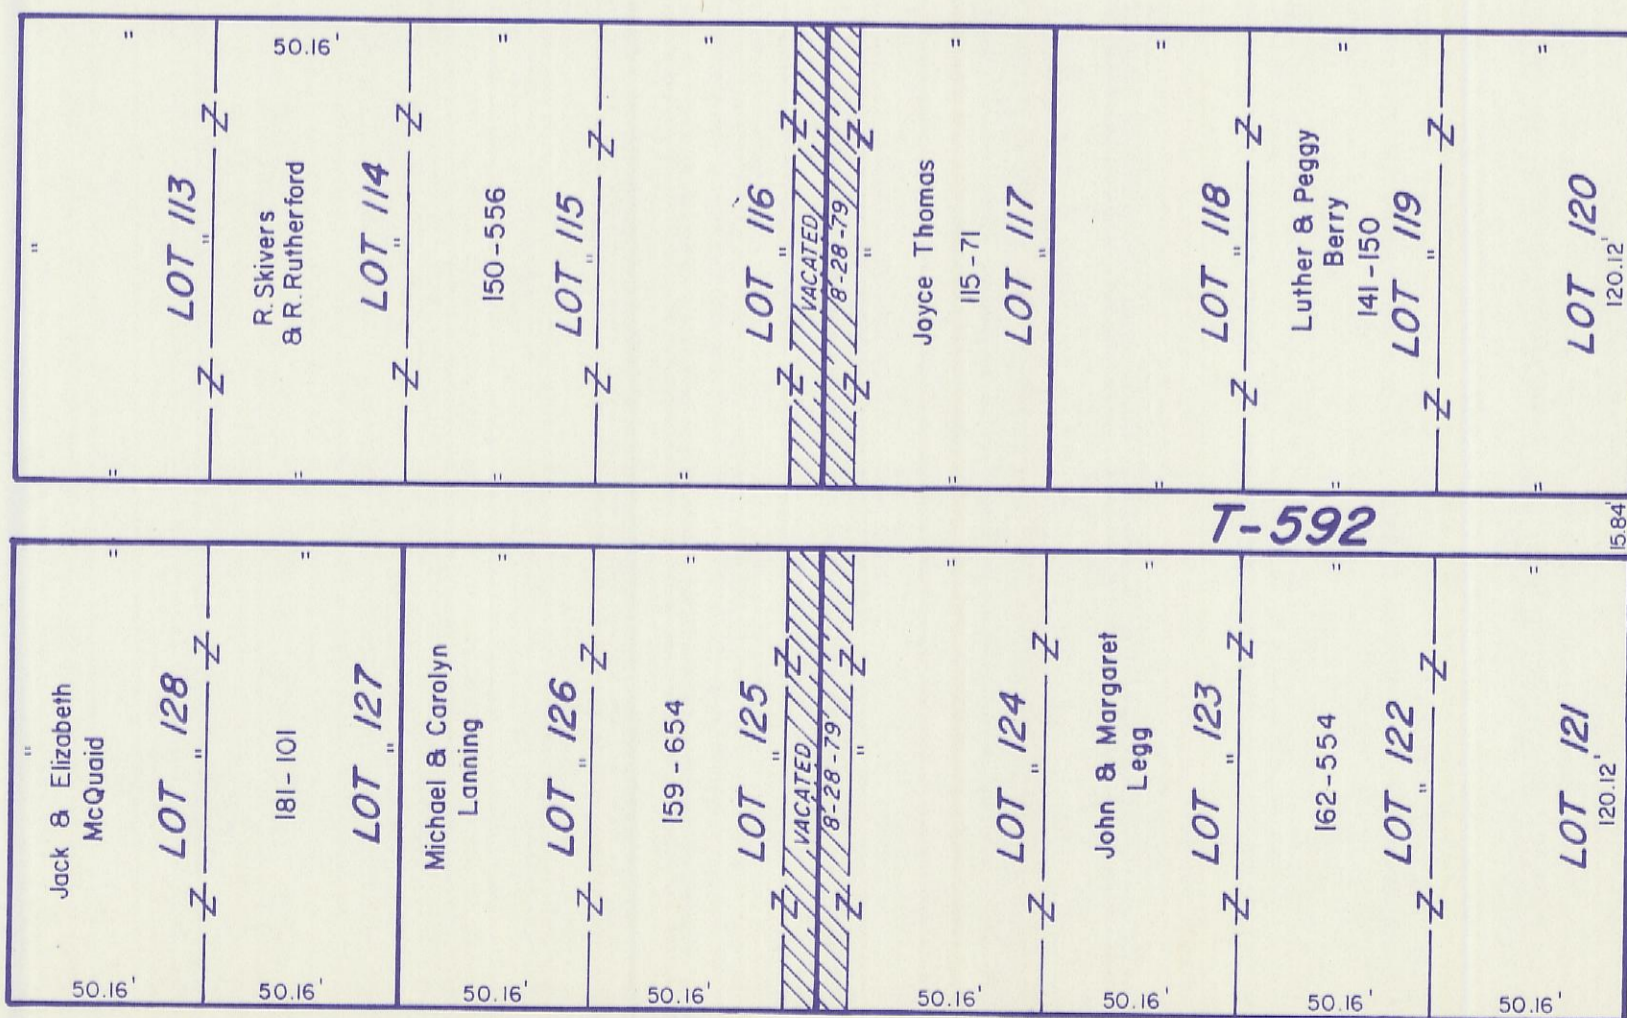 "
"
50.16'
"
"
"
"
"
"
LOT 113
"
R. Skivers
& R. Rutherford
LOT 114
"
150-556
LOT 115
"
LOT 116
"
VACATED
8-28-79
"
Joyce Thomas
115-71
LOT 117
"
LOT 118
"
Luther & Peggy
Berry
141-150
LOT 119
"
LOT 120
120.12'
"
"
"
"
"
"
"
"
T-592
15.84'
"
"
"
"
"
"
"
"
Jack & Elizabeth
McQuaid
LOT 128
"
181-101
LOT 127
"
Michael & Carolyn
Lanning
LOT 126
"
159-654
LOT 125
"
VACATED
8-28-79
"
LOT 124
"
John & Margaret
Legg
LOT 123
"
162-554
LOT 122
"
LOT 121
120.12'
50.16'
50.16'
50.16'
50.16'
50.16'
50.16'
50.16'
50.16'